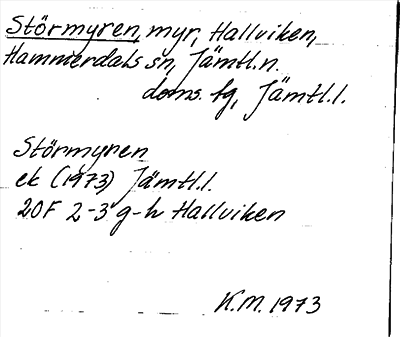 Störmyren, myr, Hallviken,
Hammerdals sn, Jämtl.n.
doms. fg, Jämtl.l.
Störmyren
ek (1973) Jämtl.l.
20F 2-3 g-h Hallviken
K.M. 1973